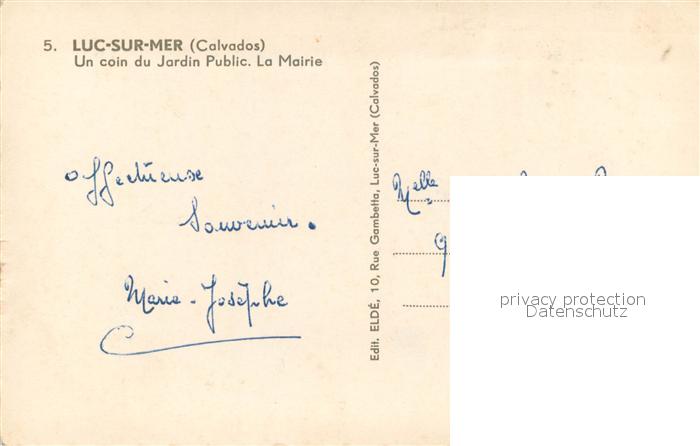 5. LUC-SUR-MER (Calvados)
Un coin du Jardin Public. La Mairie
affectueuse
Souvenir.
Marie-Josèphe
Edit. ELDÉ, 10, Rue Gambetta, Luc-sur-Mer (Calvados)
Melle
9
privacy protection
Datenschutz